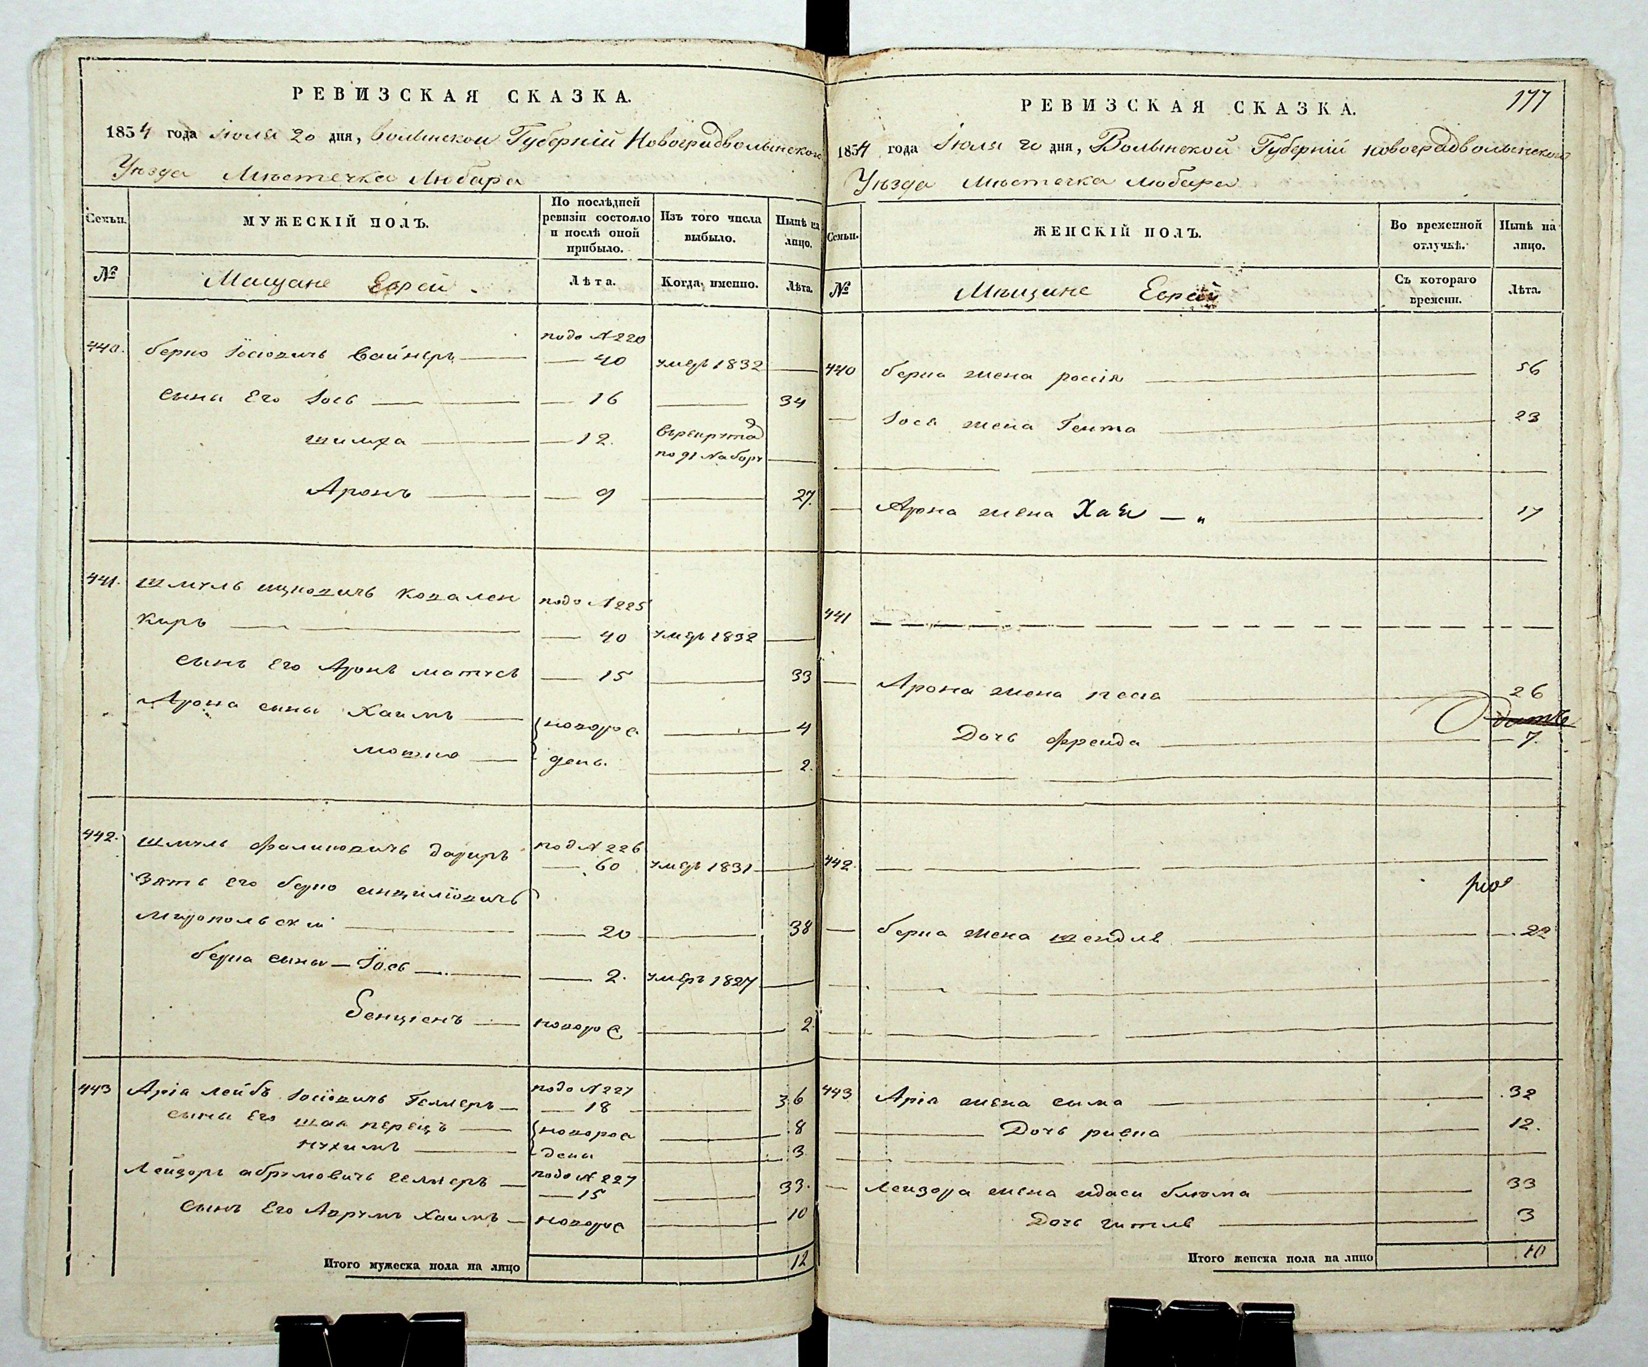 РЕВИЗСКАЯ СКАЗКА.
1854 года Июля 20 дня, Волынской Губерніи Новоградволынского
Уѣзда Мѣстечка Любара
Семьи.
МУЖЕСКІЙ ПОЛЪ.
По послѣдней ревизіи состояло и послѣ оной прибыло.
Изъ того числа выбыло.
Нынѣ на лицо.
№
Мещане Евреи
Лѣта.
Когда именно.
Лѣта.
подъ №220
440. Берко Іосіовичъ Вайнеръ 40 умеръ 1832
сыны Его Іось 16 34
шимха 12. въ рекрута
по 91 Набору
Аронъ 9 27.
441. Шмуль ицковичъ ковален подъ №225
керъ 40 умеръ 1832
сынъ Его Аронъ матусъ 15 33
Арона сыны Хаимъ новорос 4
мошко день. 2.
442. Шмуль Фаликовичъ подъ №226
60 умеръ 1831
Зять Его берко
Миропольскій 20 38
берка сыны Іось 2. умеръ 1827
Бенціенъ новорос 2
443 Арія лейбъ Іосіовичъ Геллеръ подъ №227
18 36
сыны Его шая перецъ новорос 8
нухимъ дены 3
Лейзоръ абрумовичъ Геллеръ подъ №227
15 33.
сынъ Его Аврумъ Хаимъ новорос 10
Итого мужеска пола на лицо 12
177
РЕВИЗСКАЯ СКАЗКА.
1854 года Іюля 20 дня, Волынской Губерніи новоградволынского
Уѣзда Мѣстечка Любара
Семьи.
ЖЕНСКІЙ ПОЛЪ.
Во временной отлучкѣ.
Нынѣ на лицо.
№
Мѣщане Евреи
Съ котораго времени.
Лѣта.
440 берка жена росія 56
Іося жена Гента 23
Арона жена Хая 17
441
Арона жена песа 26
Дочь Фрейда 7.
442.
берка жена шейдля 22
443 Арія жена сима 32
Дочь ривка 12.
Лейзора жена идаси блюма 33
Дочь гитля 3
Итого женска пола на лицо 10